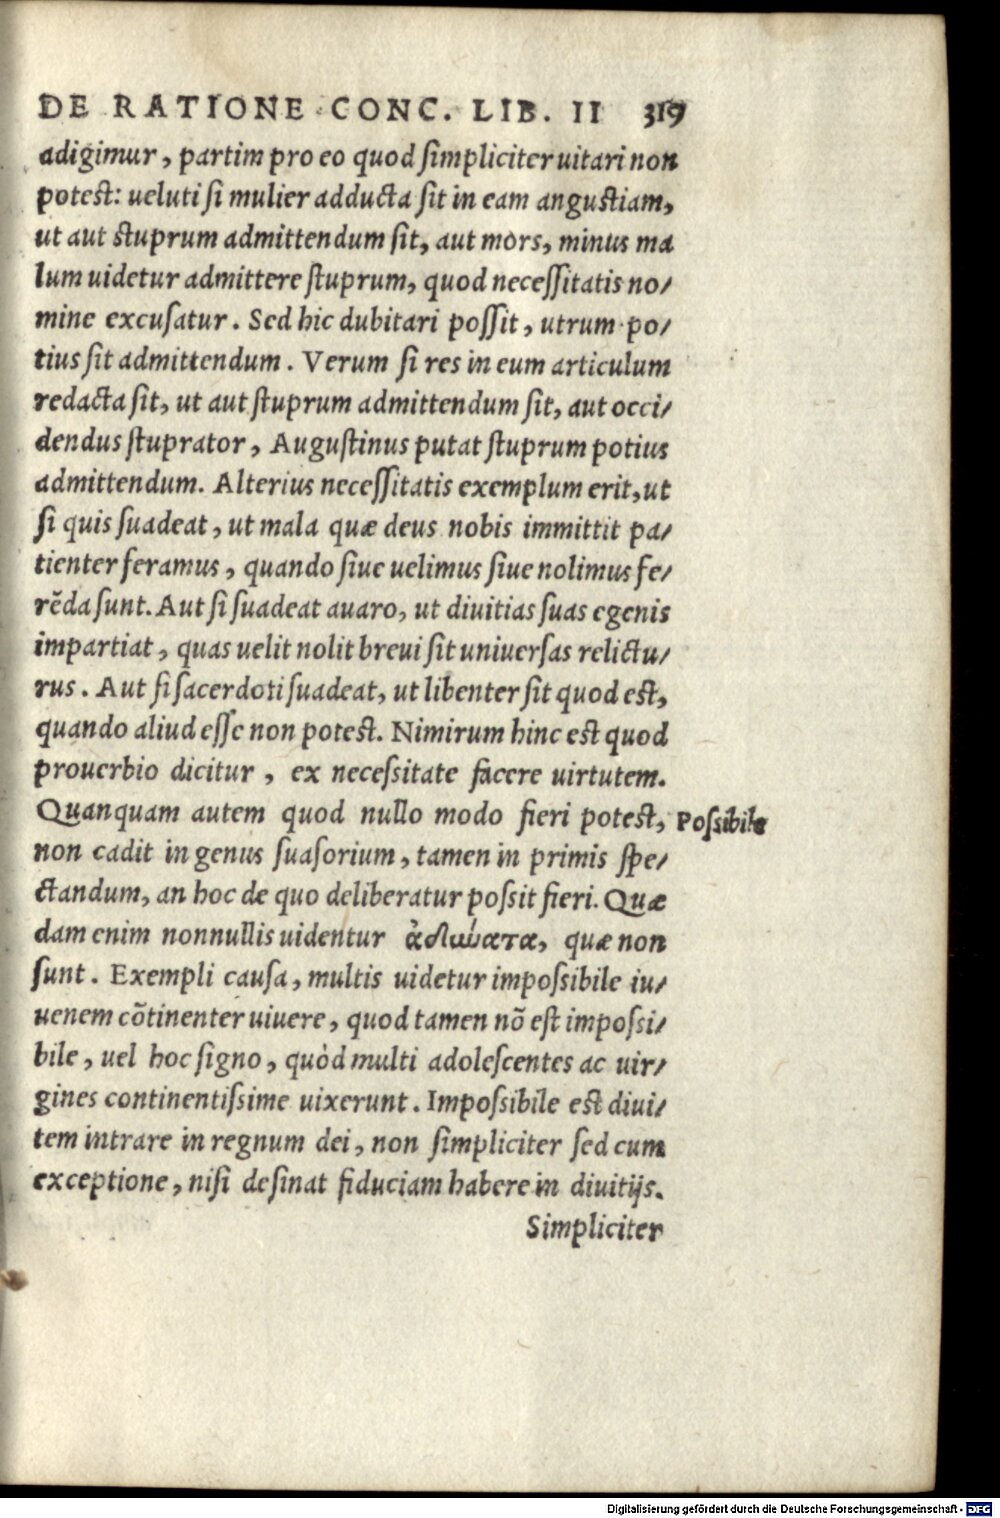 DE RATIONE CONC. LIB. II 319
adigimur, partim pro eo quod simpliciter uitari non
potest: ueluti si mulier adducta sit in eam angustiam,
ut aut stuprum admittendum sit, aut mors, minus ma
lum uidetur admittere stuprum, quod necessitatis no/
mine excusatur. Sed hic dubitari possit, utrum po/
tius sit admittendum. Verum si res in eum articulum
redacta sit, ut aut stuprum admittendum sit, aut occi/
dendus stuprator, Augustinus putat stuprum potius
admittendum. Alterius necessitatis exemplum erit, ut
si quis suadeat, ut mala quæ deus nobis immittit pa/
tienter feramus, quando siue uelimus siue nolimus fe/
rẽda sunt. Aut si suadeat auaro, ut diuitias suas egenis
impartiat, quas uelit nolit breui sit uniuersas relictu/
rus. Aut si sacerdoti suadeat, ut libenter sit quod est,
quando aliud esse non potest. Nimirum hinc est quod
prouerbio dicitur, ex necessitate facere uirtutem.
Quanquam autem quod nullo modo fieri potest, Possibile
non cadit in genus suasorium, tamen in primis spe/
ctandum, an hoc de quo deliberatur possit fieri. Quæ
dam enim nonnullis uidentur ἀδύνατα, quæ non
sunt. Exempli causa, multis uidetur impossibile iu/
uenem cõtinenter uiuere, quod tamen nõ est impossi/
bile, uel hoc signo, quòd multi adolescentes ac uir/
gines continentissime uixerunt. Impossibile est diui/
tem intrare in regnum dei, non simpliciter sed cum
exceptione, nisi desinat fiduciam habere in diuitijs.
Simpliciter
Digitalisierung gefördert durch die Deutsche Forschungsgemeinschaft - DFG